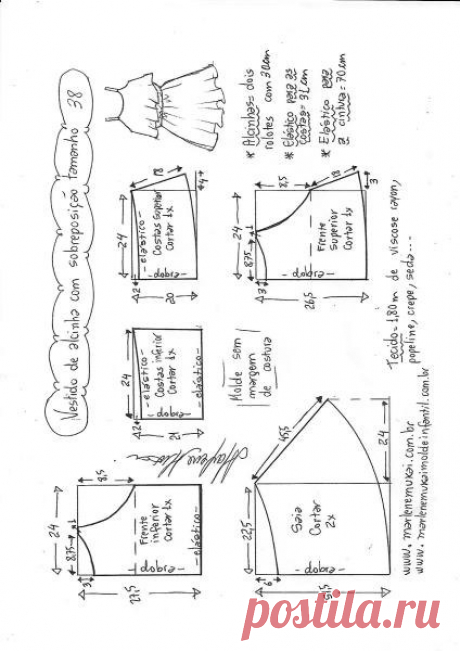 Vestido de alcinha com sobreposição tamanho 38
* Alcinhas= dois
rolotes com 30cm
* Elástico para as
costas= 31cm
* Elástico para
a cintura= 70cm
24
2
- elástico -
Costas superior
Cortar 1x
- dobra -
20
18
4
24
8,5
8,75
1
3
Frente
superior
Cortar 1x
- dobra -
18
3
26,5
24
2
- elástico -
Costas inferior
Cortar 1x
- elástico -
- dobra -
21
Molde sem
margem
de costura
Marlene Mukai
24
8,5
8,75
1
3
Frente
inferior
Cortar 1x
- elástico -
- dobra -
27,5
22,5
45,5
24
Saia
Cortar
2x
- dobra -
6
51,5
Tecido= 1,80m de viscose rayon,
popeline, crepe, seda...
www.marlenemukai.com.br
www.marlenemukaimoldeinfantil.com.br
postila.ru